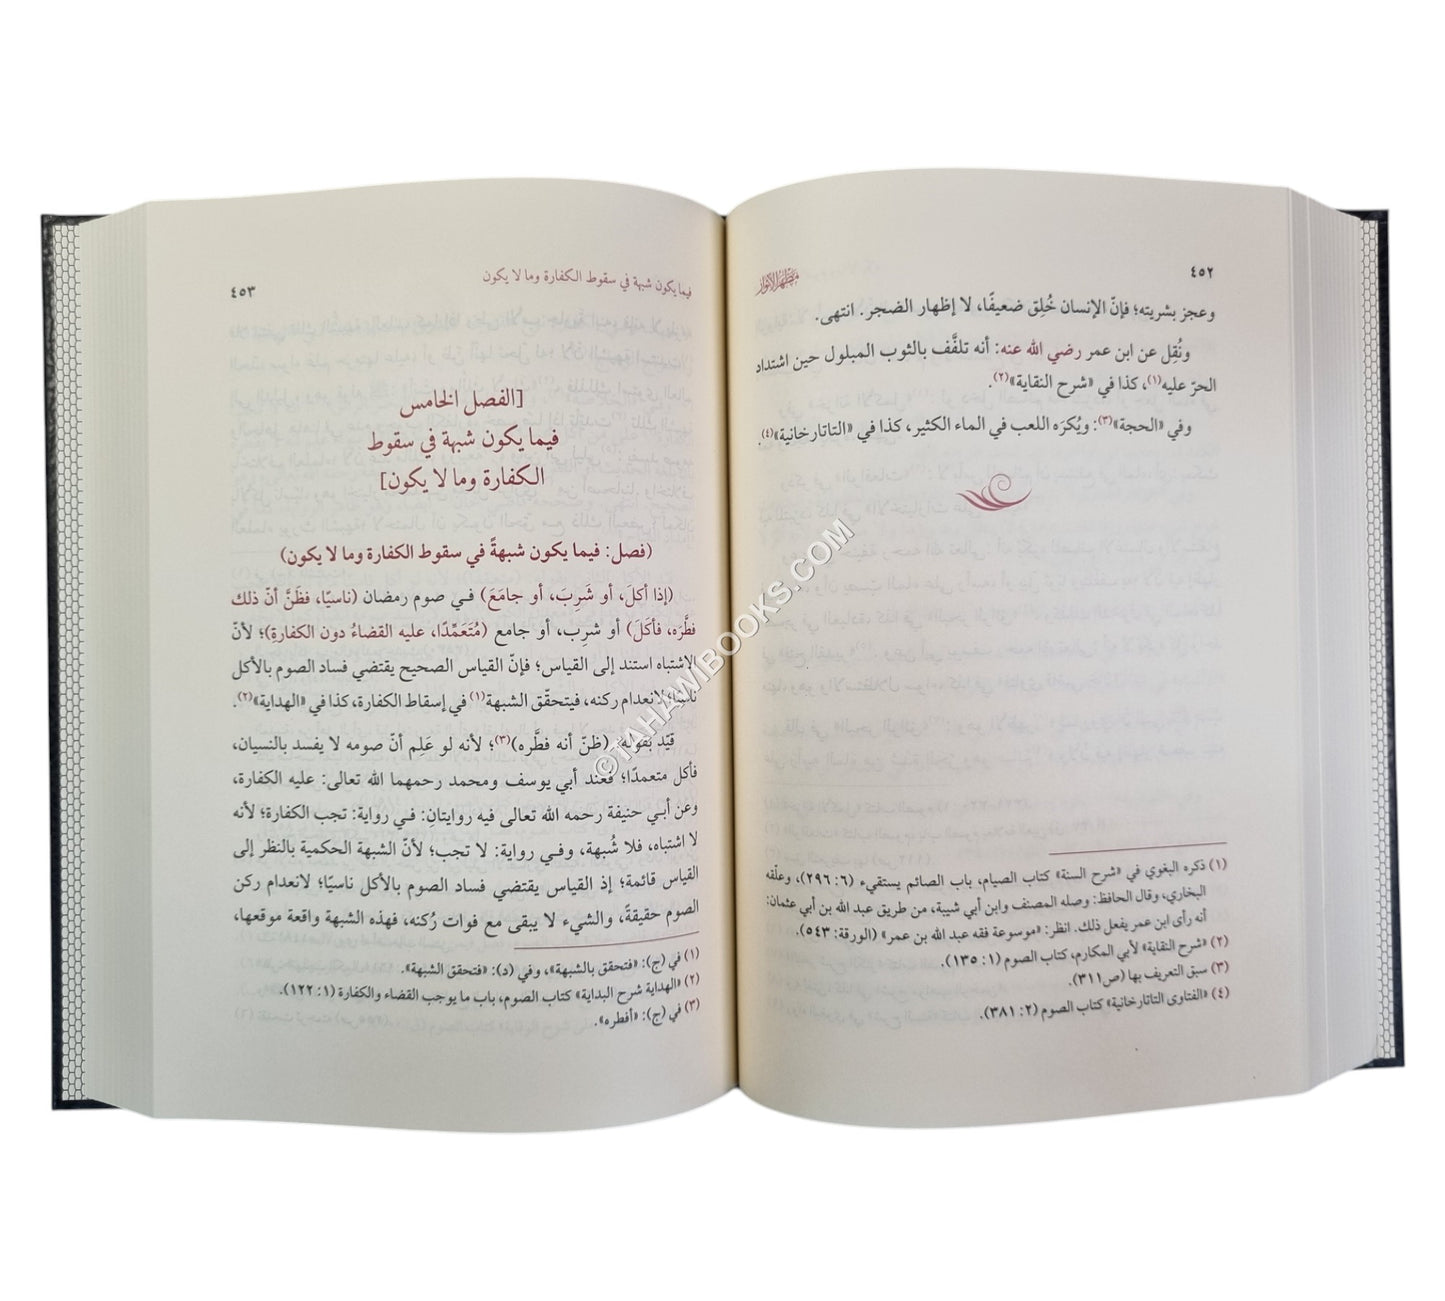 ٤٥٢
مظهر الأنوار
وعجز بشريته؛ فإنّ الإنسان خُلِق ضعيفًا، لا إظهار الضجر. انتهى.
ونُقِل عن ابن عمر رضي الله عنه: أنه تلفَّف بالثوب المبلول حين اشتداد
الحرّ عليه(١)، كذا في «شرح النقاية»(٢).
وفي «الحجة»(٣): ويُكرَه اللعب في الماء الكثير، كذا في «التاتارخانية»(٤).
(١) ذكره البغوي في «شرح السنة» كتاب الصيام، باب الصائم يستقيء (٦: ٢٩٦)، وعلّقه
البخاري، وقال الحافظ: وصله المصنف وابن أبي شيبة، من طريق عبد الله بن أبي عثمان:
أنه رأى ابن عمر يفعل ذلك. انظر: «موسوعة فقه عبد الله بن عمر» (الورقة: ٥٤٣).
(٢) «شرح النقاية» لأبي المكارم، كتاب الصوم (١: ١٣٥).
(٣) سبق التعريف بها (ص٣١١).
(٤) «الفتاوى التاتارخانية» كتاب الصوم (٢: ٣٨١).
فيما يكون شبهة في سقوط الكفارة وما لا يكون
٤٥٣
[الفصل الخامس
فيما يكون شبهة في سقوط
الكفارة وما لا يكون]
(فصل: فيما يكون شبهةً في سقوط الكفارة وما لا يكون)
(إذا أكلَ، أو شَرِبَ، أو جامَعَ) في صوم رمضان (ناسيًا، فظَنَّ أنّ ذلك
فطَّرَه، فأكَلَ) أو شرِب، أو جامع (مُتَعَمِّدًا، عليه القضاءُ دون الكفارةِ)؛ لأنّ
الاشتباه استند إلى القياس؛ فإنّ القياس الصحيح يقتضي فساد الصوم بالأكل
ناسيًا؛ لانعدام ركنه، فيتحقّق الشبهة(١) في إسقاط الكفارة، كذا في «الهداية»(٢).
قيّد بقوله: (ظنّ أنه فطَّره)(٣)؛ لأنه لو عَلِم أنّ صومه لا يفسد بالنسيان،
فأكل متعمدًا؛ فعند أبي يوسف ومحمد رحمهما الله تعالى: عليه الكفارة،
وعن أبي حنيفة رحمه الله تعالى فيه روايتانِ: في رواية: تجب الكفارة؛ لأنه
لا اشتباه، فلا شُبهة، وفي رواية: لا تجب؛ لأنّ الشبهة الحكمية بالنظر إلى
القياس قائمة؛ إذ القياس يقتضي فساد الصوم بالأكل ناسيًا؛ لانعدام ركن
الصوم حقيقةً، والشيء لا يبقى مع فوات رُكنه، فهذه الشبهة واقعة موقعها،
(١) في (ج): «فتحقق بالشبهة»، وفي (د): «فتحقق الشبهة».
(٢) «الهداية شرح البداية» كتاب الصوم، باب ما يوجب القضاء والكفارة (١: ١٢٢).
(٣) في (ج): «أفطره».
©TAHAWIBOOKS.COM